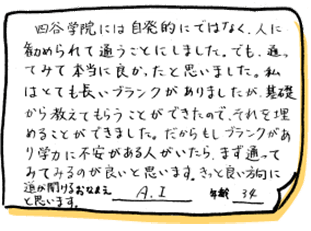 四谷学院には自発的にではなく、人に
勧められて通うことにしました。でも、通っ
てみて本当に良かったと思いました。私
はとても長いブランクがありましたが、基礎
から教えてもらうことができたので、それを埋
めることができました。だからもしブランクがあ
り学力に不安がある人がいたら、まず通って
みてみるのが良いと思います。きっと良い方向に
道が開けると思います。
おなまえ A.I 年齢 34